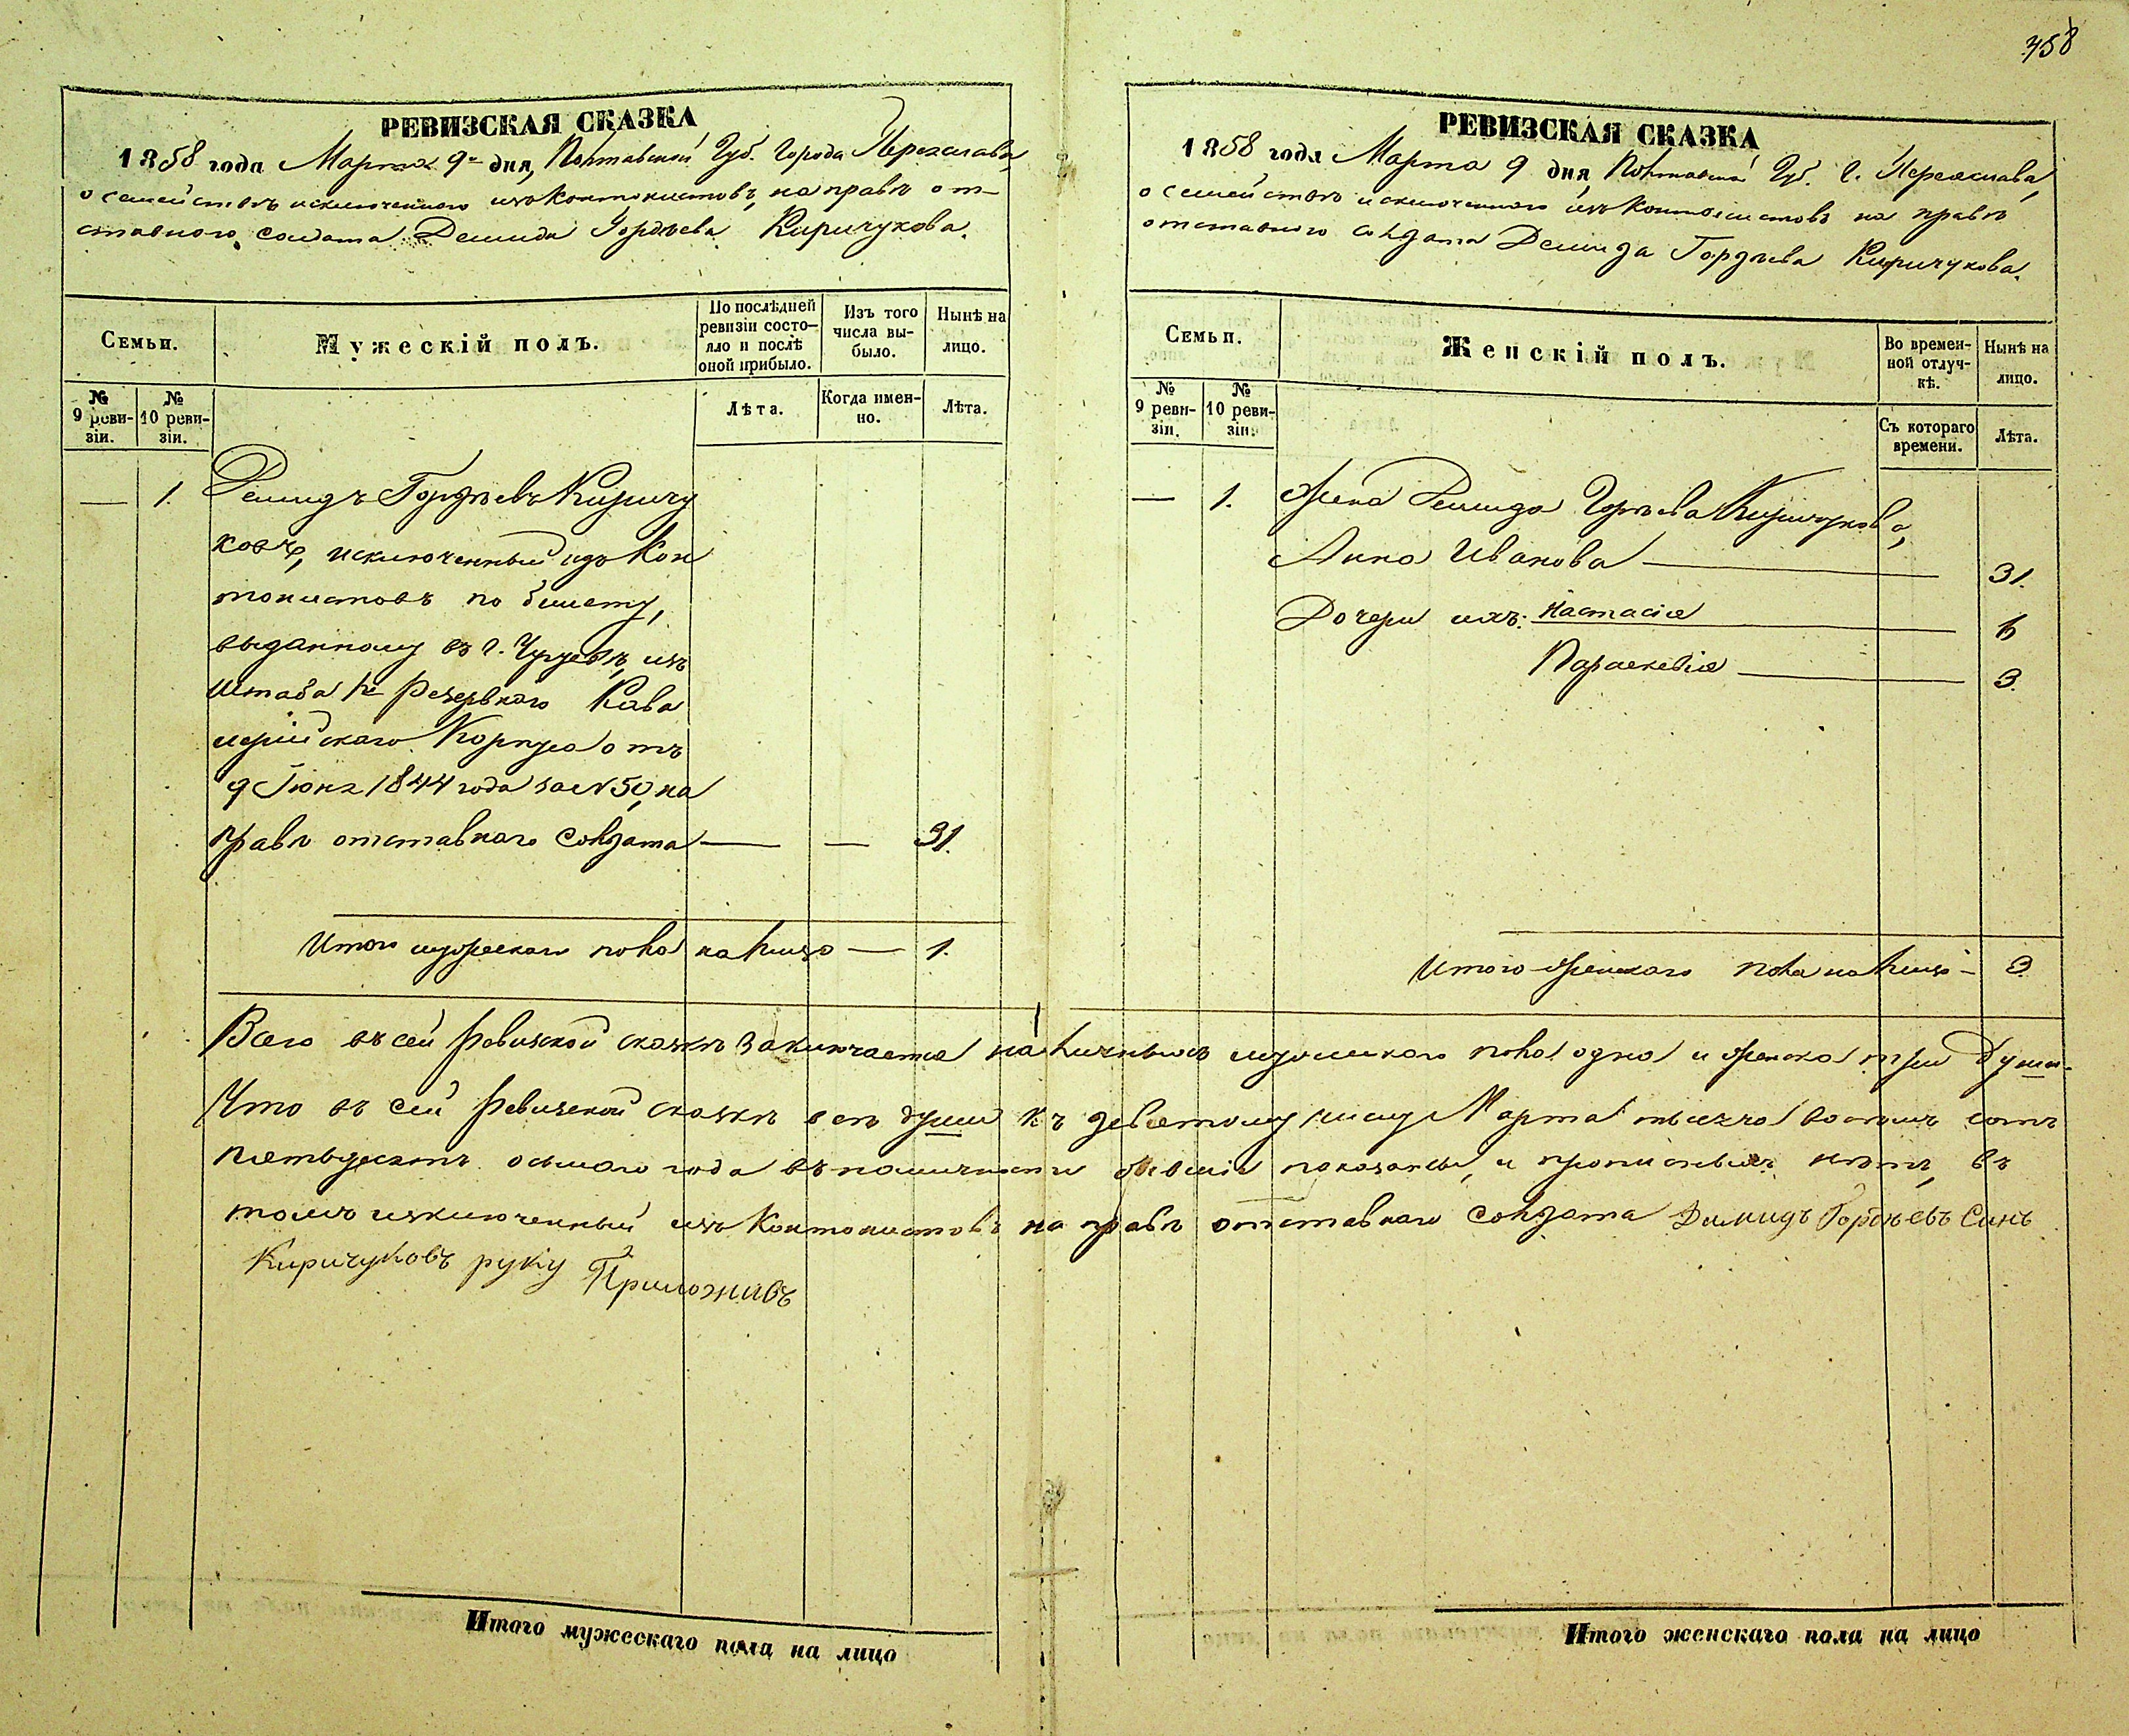 758
РЕВИЗСКАЯ СКАЗКА
1858 года Марта 9го дня, Полтавской Губ. Города Переяслава,
о семействѣ исключеннаго изъ Кантонистовъ, на правѣ от-
ставного солдата Демида Гордѣева Киричукова.
Семьи.
Мужескій полъ.
По послѣдней ревизіи состо-
яло и послѣ оной прибыло.
Изъ того числа вы-
было.
Нынѣ на лицо.
№ 9 реви-
зіи.
№ 10 реви-
зіи.
Лѣта.
Когда имен-
но.
Лѣта.
— 1. Демидъ Гордѣевъ Киричу
ковъ, исключенный изъ Кан
тонистовъ по билету,
выданному въ г. Чугуевѣ, изъ
Штаба 1го Резервнаго Кава
лерійскаго Корпуса отъ
9 Іюня 1844 года за N 50, на
правѣ отставнаго Солдата — — 31.
Итого мужескаго пола на лицо — 1.
РЕВИЗСКАЯ СКАЗКА
1858 года Марта 9 дня, Полтавской Губ. Г. Переяслава,
о семействѣ исключеннаго изъ Кантонистовъ на правѣ
отставного солдата Демида Гордѣева Киричукова.
Семьи.
Женскій полъ.
Во времен-
ной отлуч-
кѣ.
Нынѣ на лицо.
№ 9 реви-
зіи.
№ 10 реви-
зіи.
Съ котораго времени.
Лѣта.
— 1. Жена Демида Гордѣева Киричукова,
Анна Иванова — 31.
Дочери ихъ: Настасія —
Параскевія — 3.
Итого женскаго пола на лицо — 3.
Всего въ сей Ревизской сказкѣ заключается наличныхъ мужескаго пола одна и женска три души.
Что въ сей Ревизской сказкѣ всѣ души къ девятому числу Марта тысяча восемь сотъ
пятьдесятъ осьмаго года въ наличности бывшія показаны, и прописныхъ нѣтъ, въ
томъ изключенный изъ Кантонистовъ на правѣ отставнаго Солдата Демидъ Гордѣевъ Синъ
Киричуковъ руку Приложивъ
Итого мужескаго пола на лицо
Итого женскаго пола на лицо